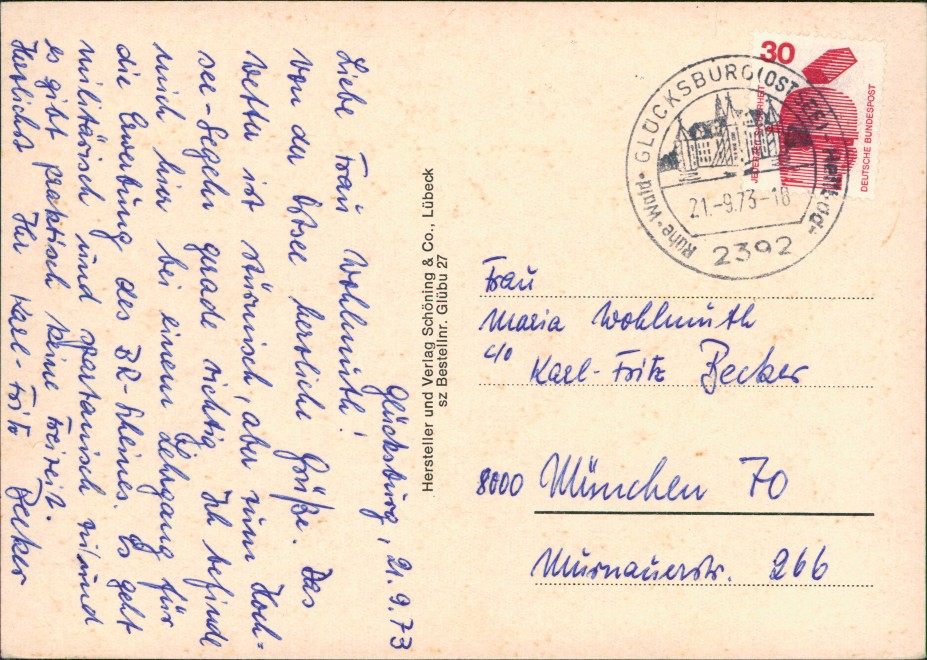 Glücksburg, 21.9.73
Liebe Frau Wohlmuth!
Von der Ostsee herzliche Grüße. Das
Wetter ist stürmisch, aber zum Hoch-
see-Segeln grade richtig. Ich befinde
mich hier bei einem Lehrgang für
die Erwerbung des BR-Scheines. Es geht
militärisch und spartanisch zu und
es gibt praktisch keine Freizeit.
Herlichst Ihr Karl-Fritz Becker
Hersteller und Verlag Schöning & Co., Lübeck
sz Bestellnr. Glübu 27
30
DEUTSCHE BUNDESPOST
GLÜCKSBURG (OSTSEE)
Ruhe·Wald·
21.-9.73-18
2392
Frau
Maria Wohlmuth
c/o
Karl-Fritz Becker
8000 München 70
Murnauerstr. 266